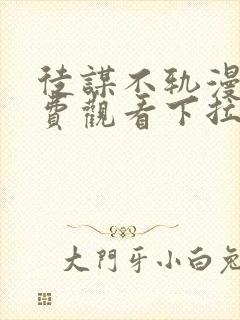 徒謀不軌漫
費觀看下拉
大門牙小白兔